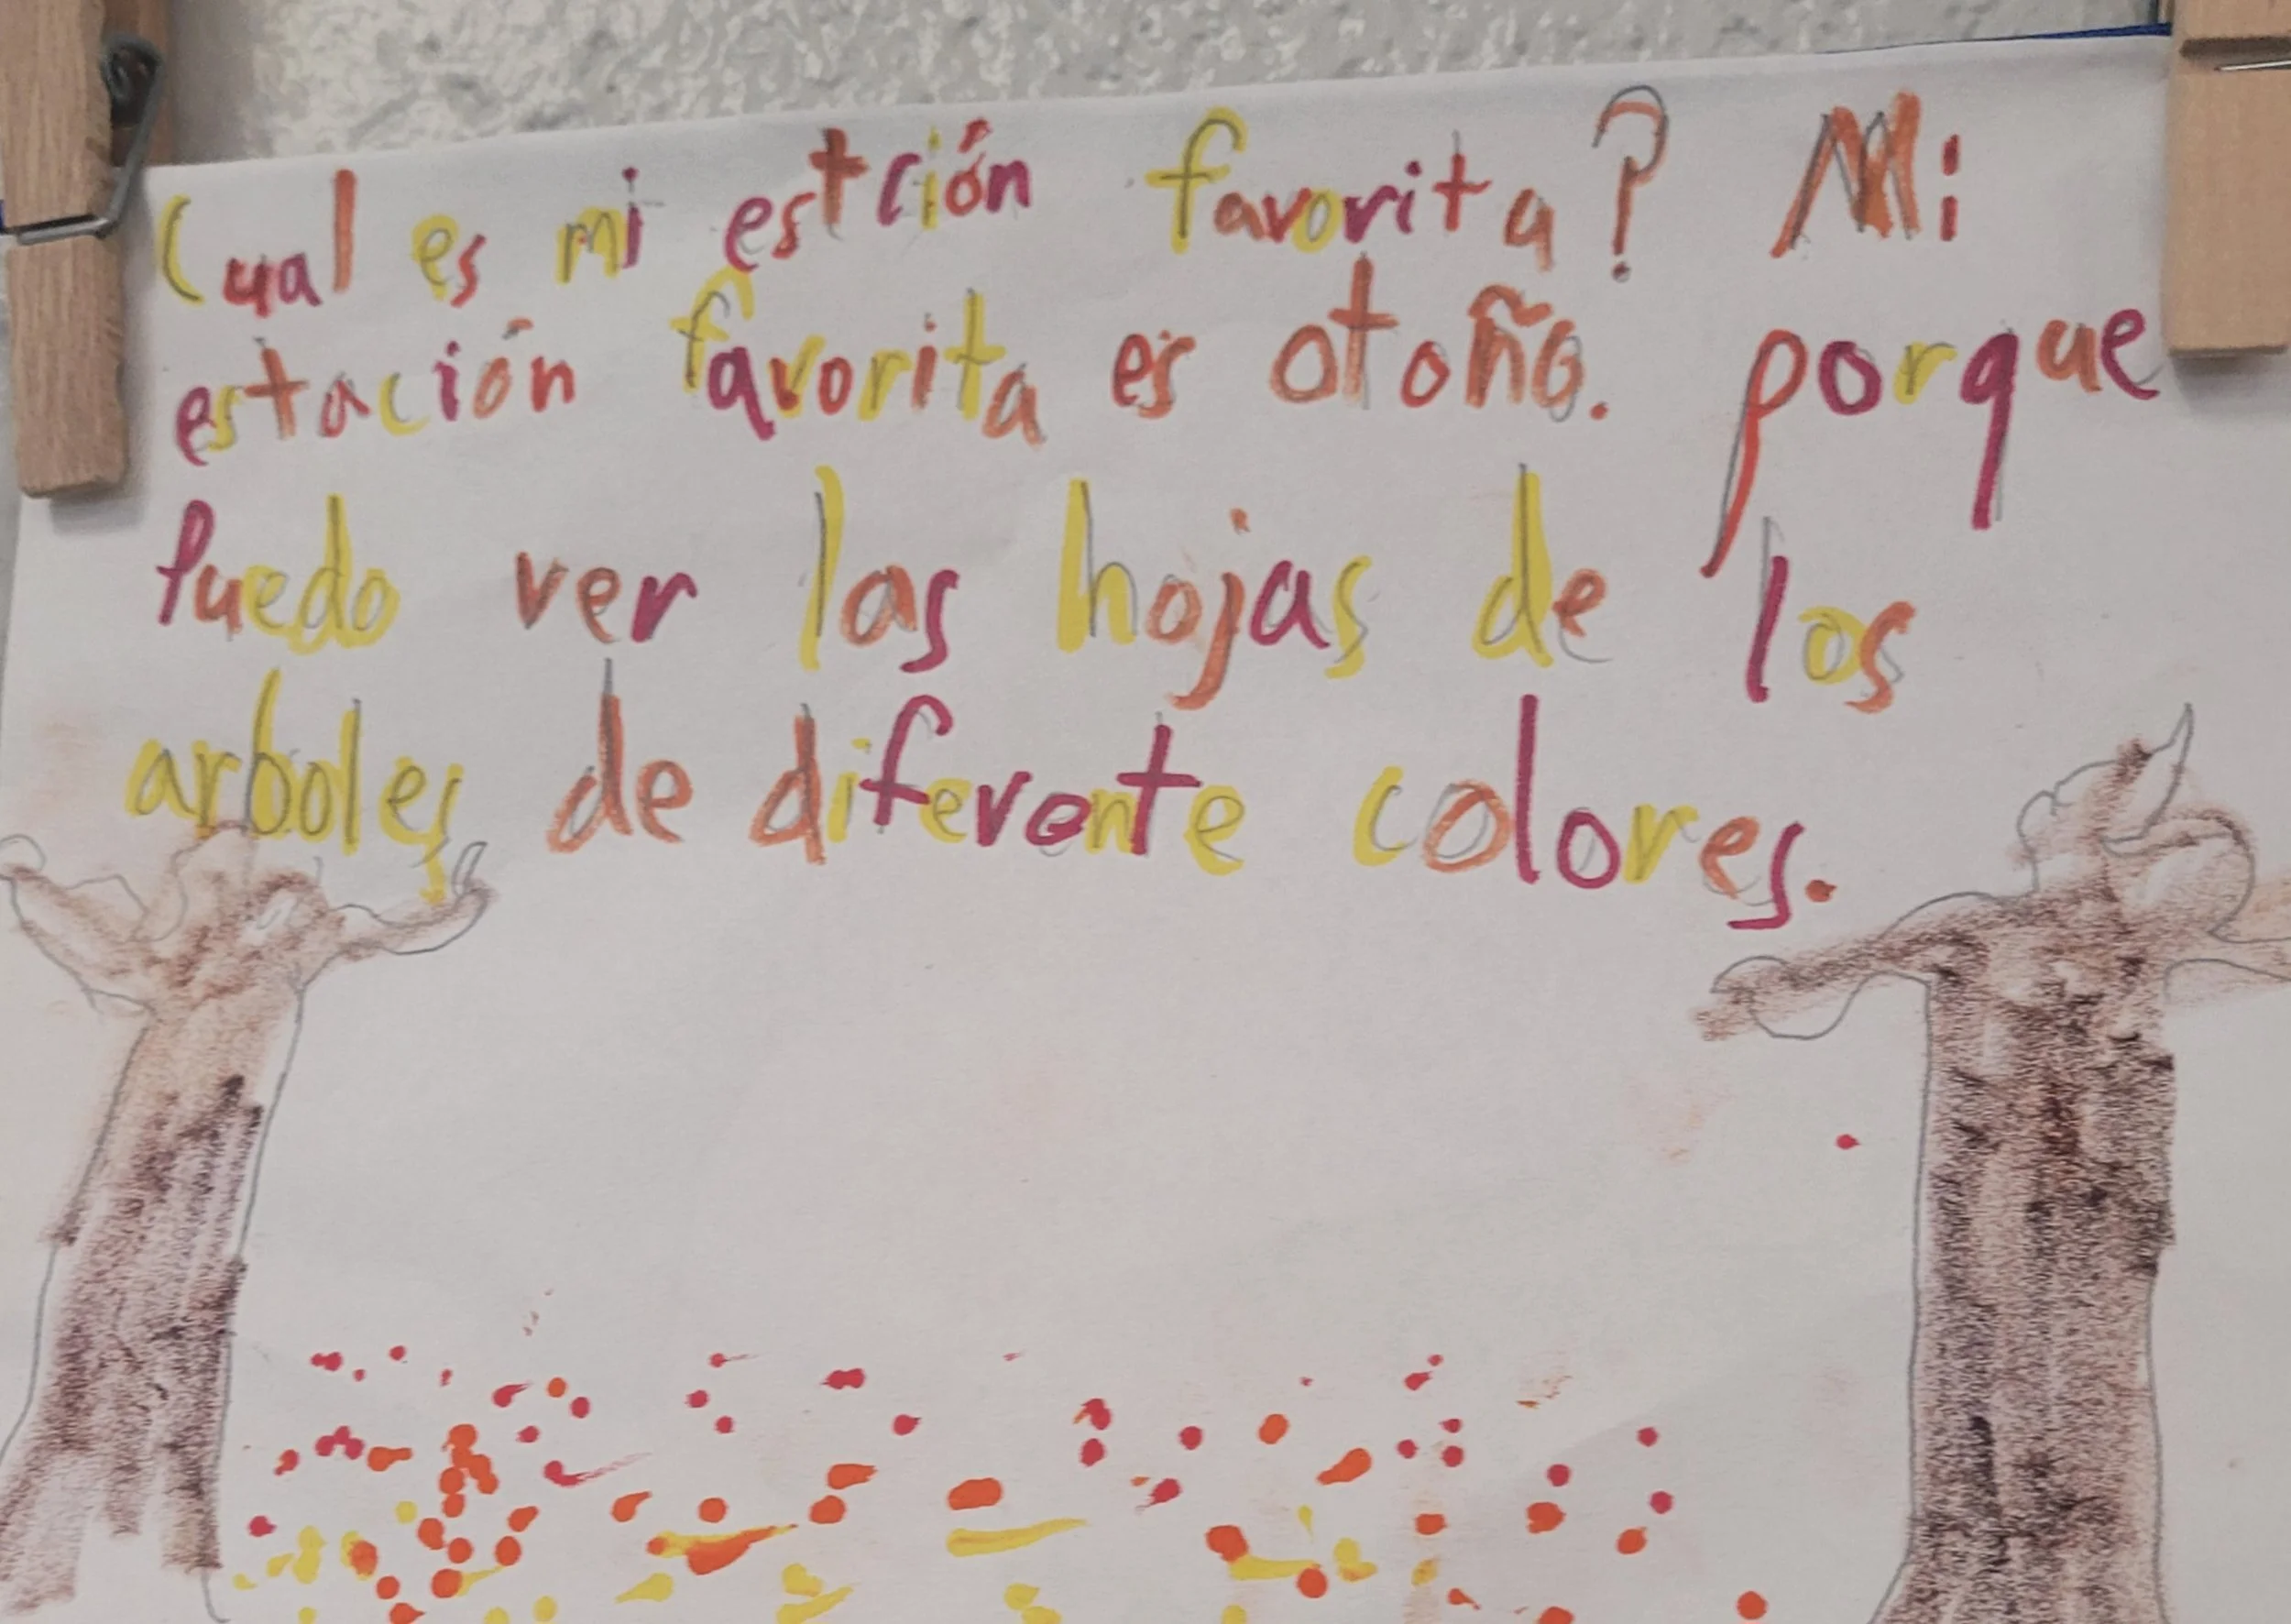 Cual es mi estción favorita? Mi
estación favorita es otoño. porque
Puedo ver las hojas de los
arboles de diferente colores.